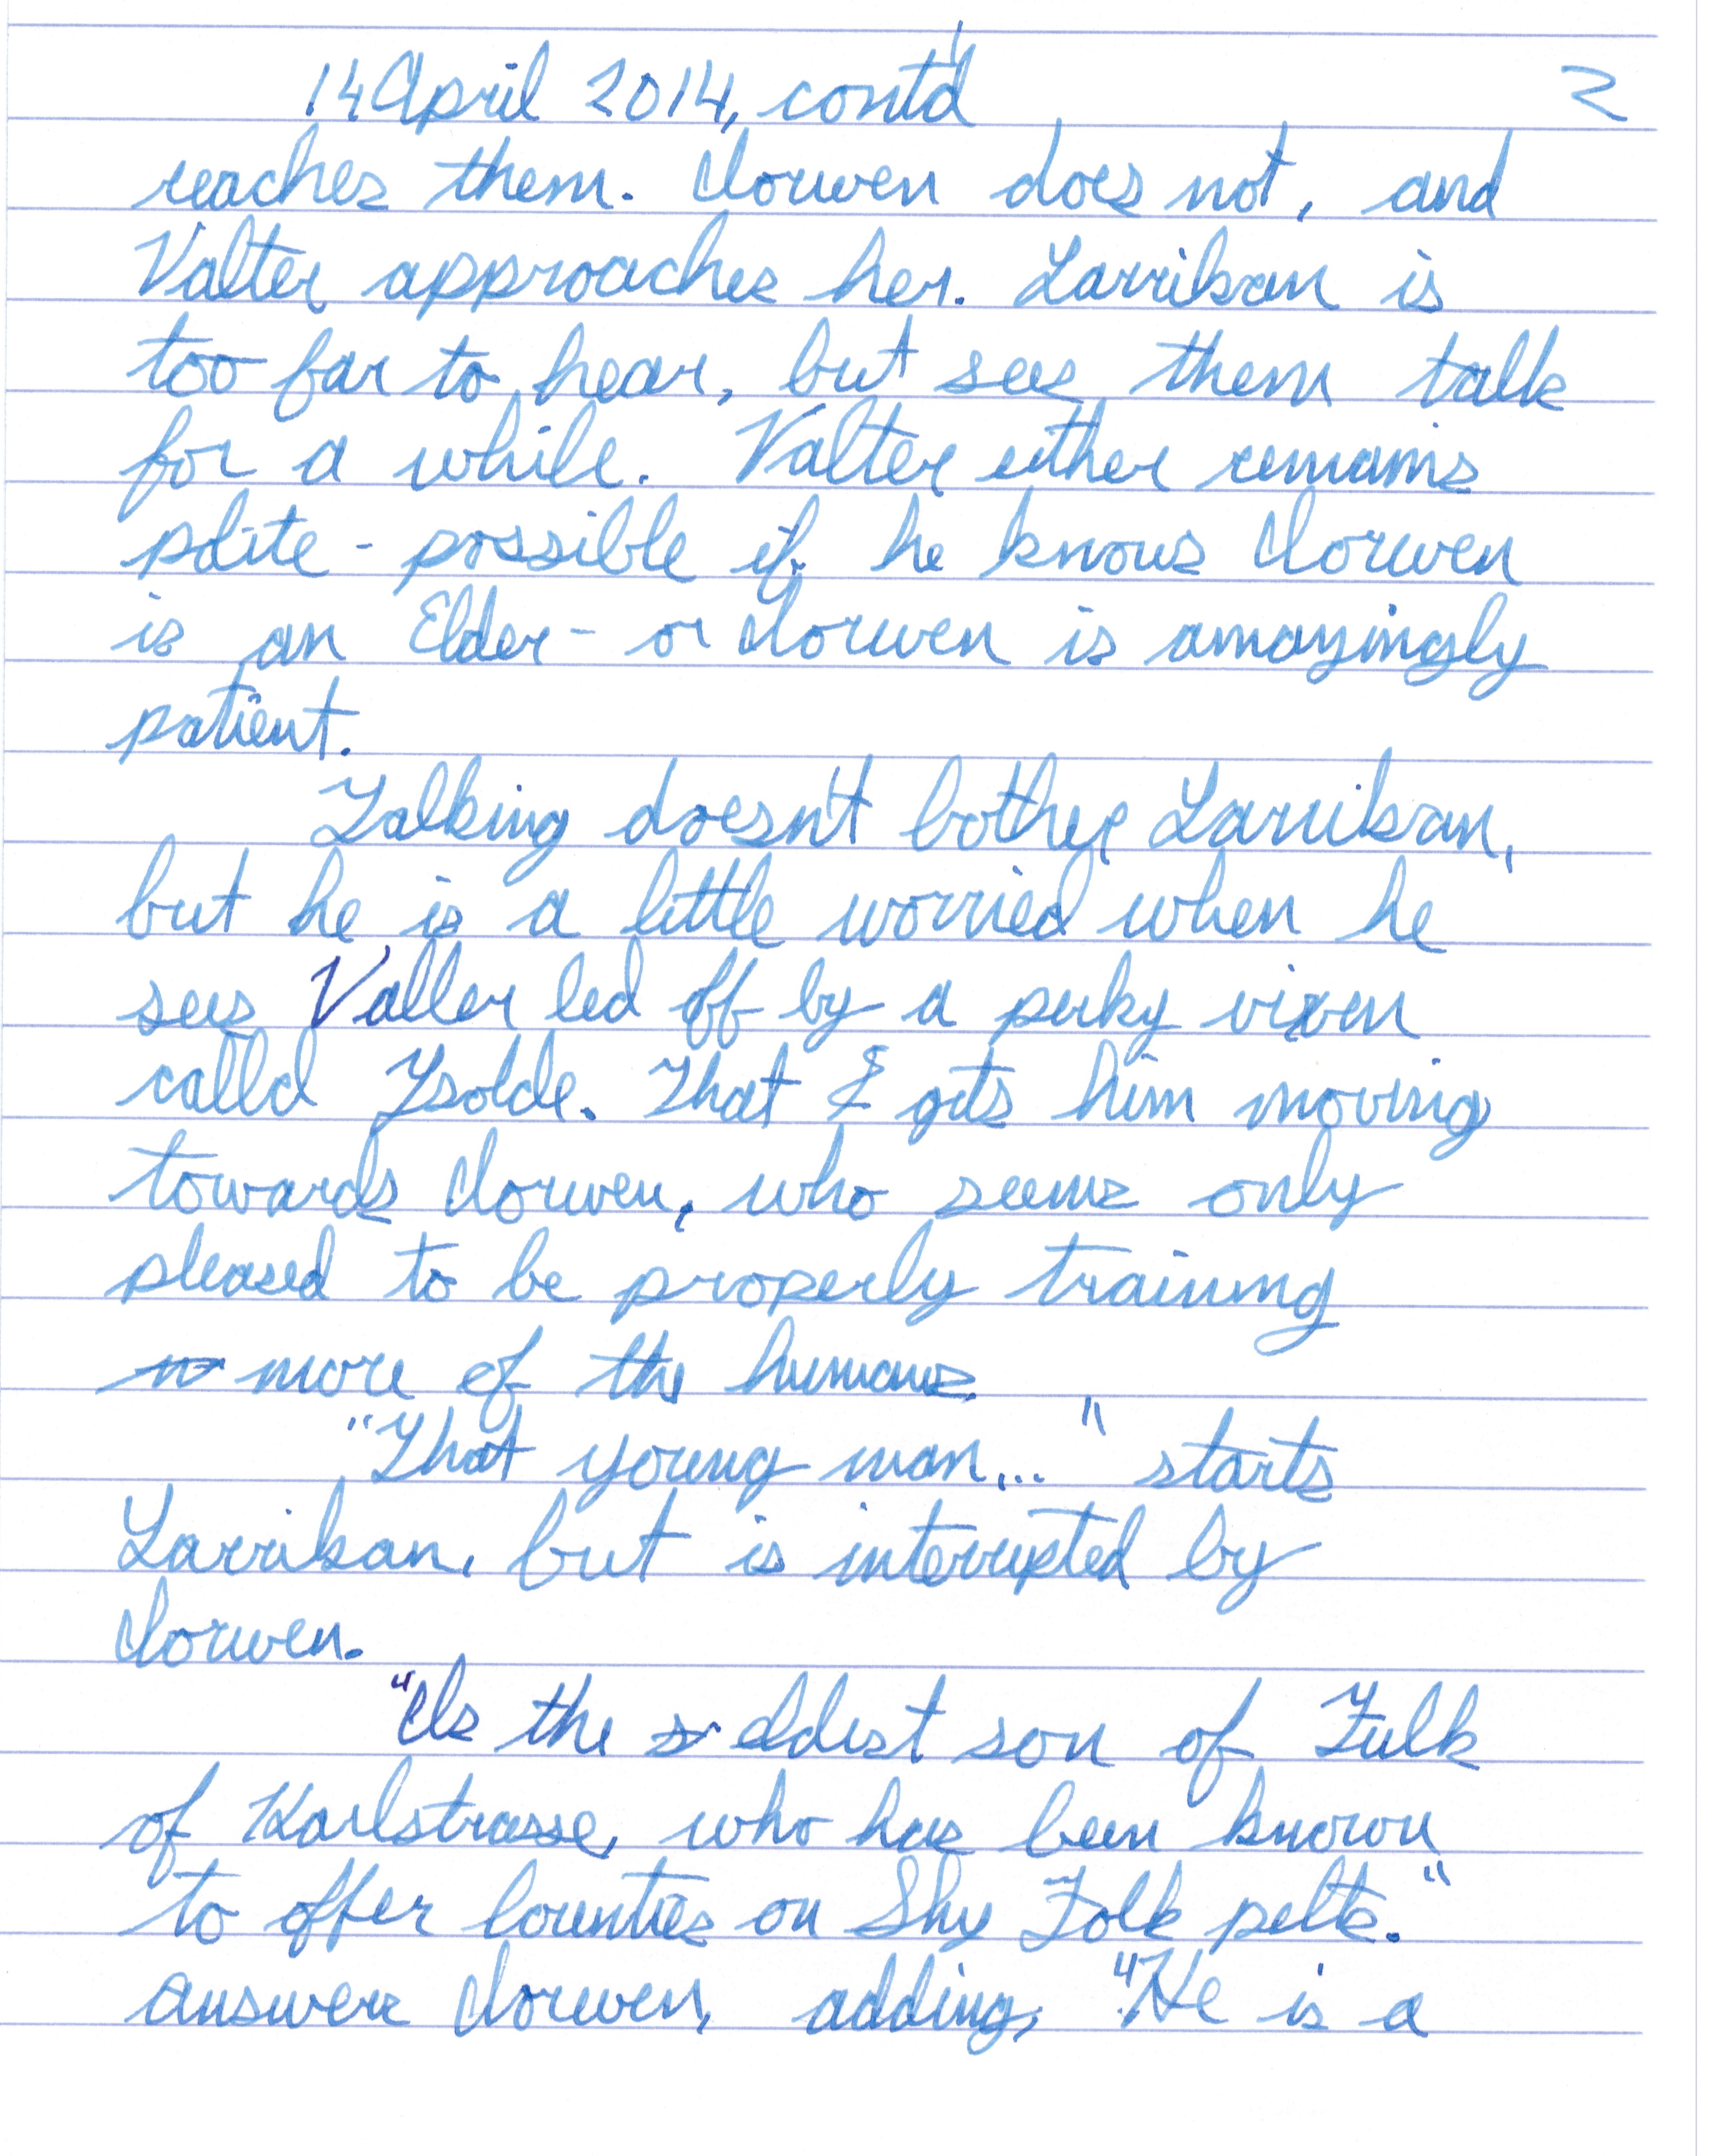 14 April 2014, cont'd 2
reaches them. Clorwen does not, and
Valter approaches her. Larrikan is
too far to hear, but sees them talk
for a while. Valter either remains
polite - possible if he knows Clorwen
is an Elder - or Clorwen is amazingly
patient.
Talking doesn't bother Larrikan,
but he is a little worried when he
sees Valter led off by a perky vixen
calld Ysolde. That gets him moving
towards Clorwen, who seems only
pleased to be properly training
more of the humans
"That young man..." starts
Larrikan, but is interrupted by
Clorwen.
"Is the eldest son of Fulk
of Karlstrasse, who has been known
to offer bounties on Shy Folk pelts."
answers Clorwen, adding, "He is a